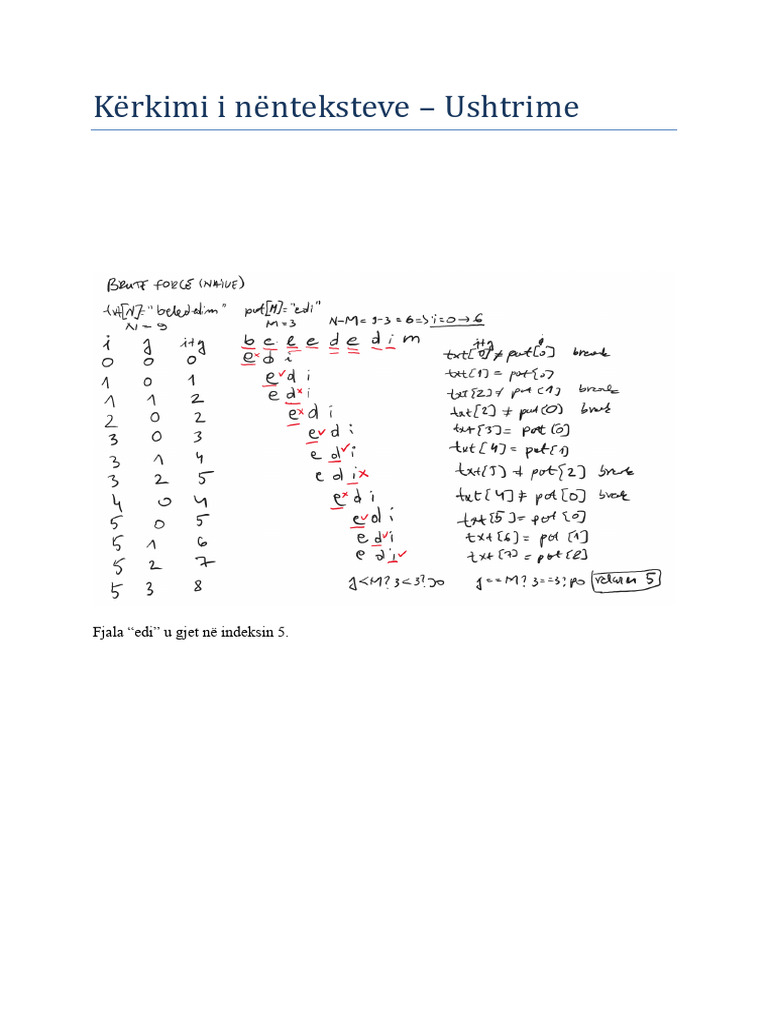 Kërkimi i nënteksteve – Ushtrime
BRUTE FORCE (NAIVE)
txt[N]="beleedim" pat[M]="edi"
N=9 M=3 N-M=9-3=6=> i=0→6
i j i+j b e e e d e d i m i+j j
0 0 0 e× d i txt[0]≠pat[0] break
1 0 1 e✓ d i txt[1]=pat[0]
1 1 2 e d× i txt[2]≠pat[1] break
2 0 2 e× d i txt[2]≠pat[0] break
3 0 3 e✓ d i txt[3]=pat[0]
3 1 4 e d✓ i txt[4]=pat[1]
3 2 5 e d i× txt[5]≠pat[2] break
4 0 4 e× d i txt[4]≠pat[0] break
5 0 5 e✓ d i txt[5]=pat[0]
5 1 6 e d✓ i txt[6]=pat[1]
5 2 7 e d i✓ txt[7]=pat[2]
5 3 8 j<M? 3<3? jo j==M? 3==3? po return 5
Fjala “edi” u gjet në indeksin 5.